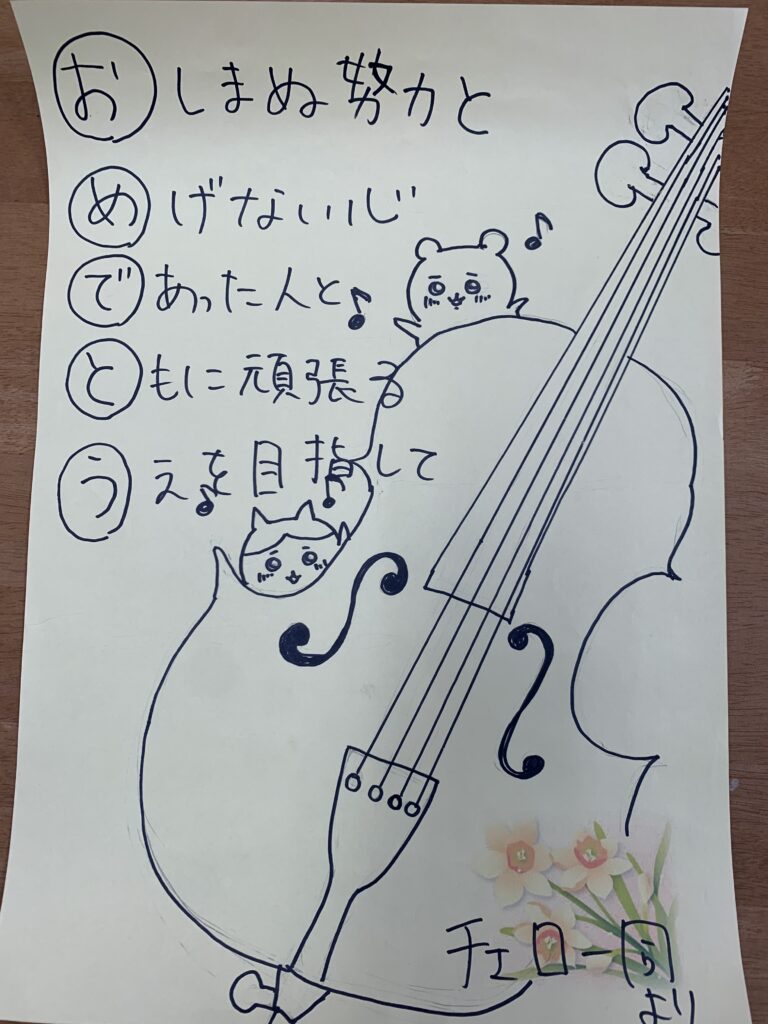 おしまぬ努力と
めげないいじ
であった人と
ともに頑張る
うえを目指して
チェロ一同
より